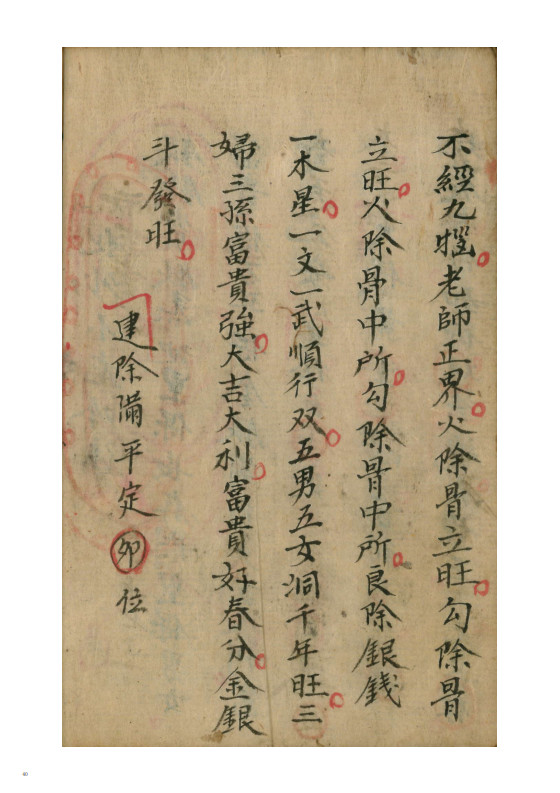 不經九𤯝老師正界火除骨立旺勾除骨
立旺火除骨中所勾除骨中所良除銀錢
一木星一文一武順行双五男五女洞千年旺三
婦三孫富貴強大吉大利富貴好春分金銀
斗發旺
建除滿平定卯位
40